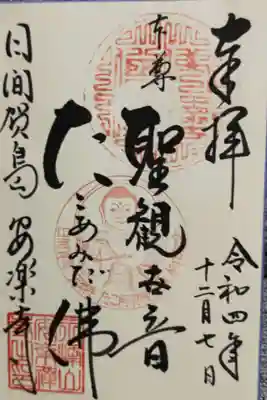 奉拝
令和四年
十二月七日
本尊
聖観世音
たこあみだ佛
日間賀島 安楽寺